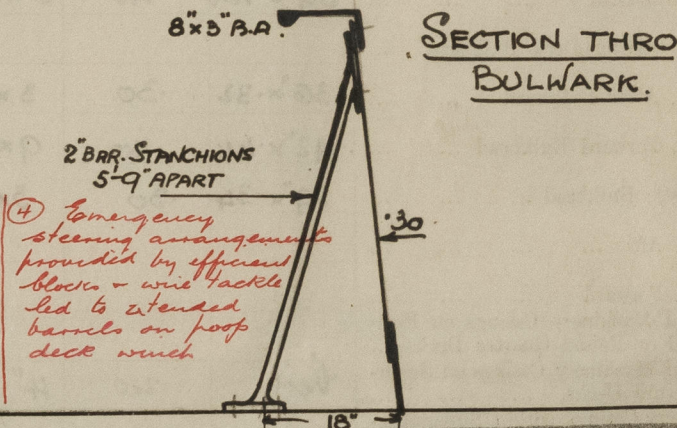 8"x3" B.A.
SECTION THRO
BULWARK.
2" BAR. STANCHIONS
5'-9" APART
.30
④ Emergency
steering arrangements
provided by efficient
blocks & wire tackle
led to extended
barrels on poop
deck winch
18"